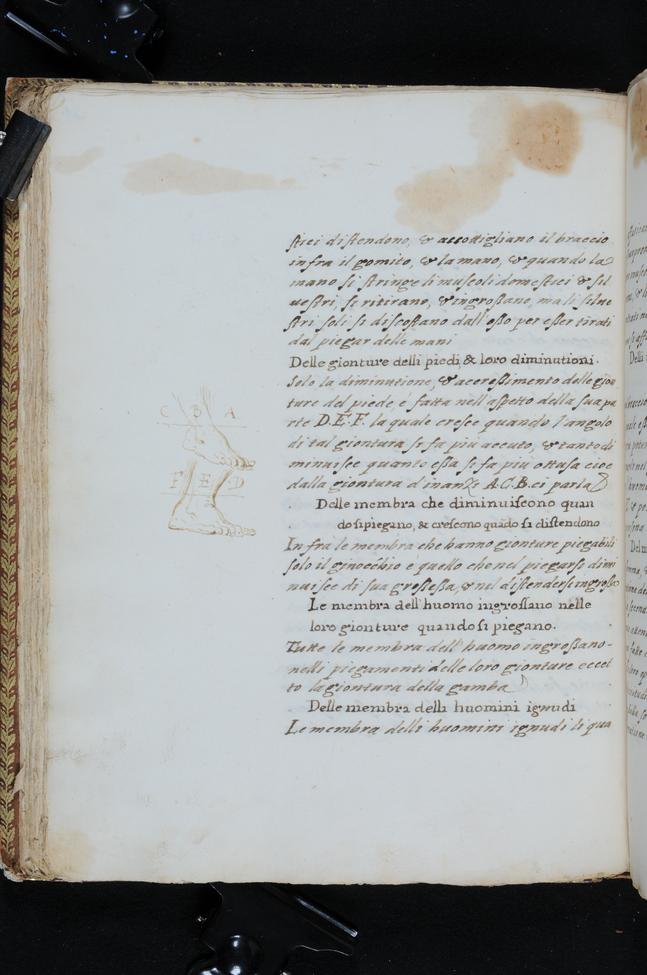 stici distendono, & attortigliano il braccio
infra il gomito, & la mano, & quando la
mano si stringe li muscoli domestici & sil
uestri, si ritirano, & ingrossano, ma li silue
stri soli si discostano dall'osso per esser tirati
dal piegar delle mani
Delle gionture delli piedi, & loro diminutioni.
Solo la diminutione, & accrossimento delle gion
ture del piede, é fatta nell'aspetto della sua pa
rte D.E.F. la quale cresce quando l'angolo
di tal giontura si fa piu accuto, & tanto di
minuisce quanto essa si fa piu ottusa cioe
dalla giontura dinanzi A.C.B. ci parla
Delle membra che diminuiscono quan
do si piegano, & crescono quãdo si distendono
Infra le membra che hanno gionture piegabili
solo il ginocchio e quello che nel piegarsi dimi
nuisce di sua grossessa, & nel distendersi ingrossa
Le membra dell'huomo ingrossano nelle
loro gionture quando si piegano.
Tutte le membra dell'huomo ingrossano
nelli piegamenti delle loro gionture eccet
to la giontura della gamba
Delle membra delli huomini ignudi
Le membra delli huomini ignudi li qua
C B A
F E D